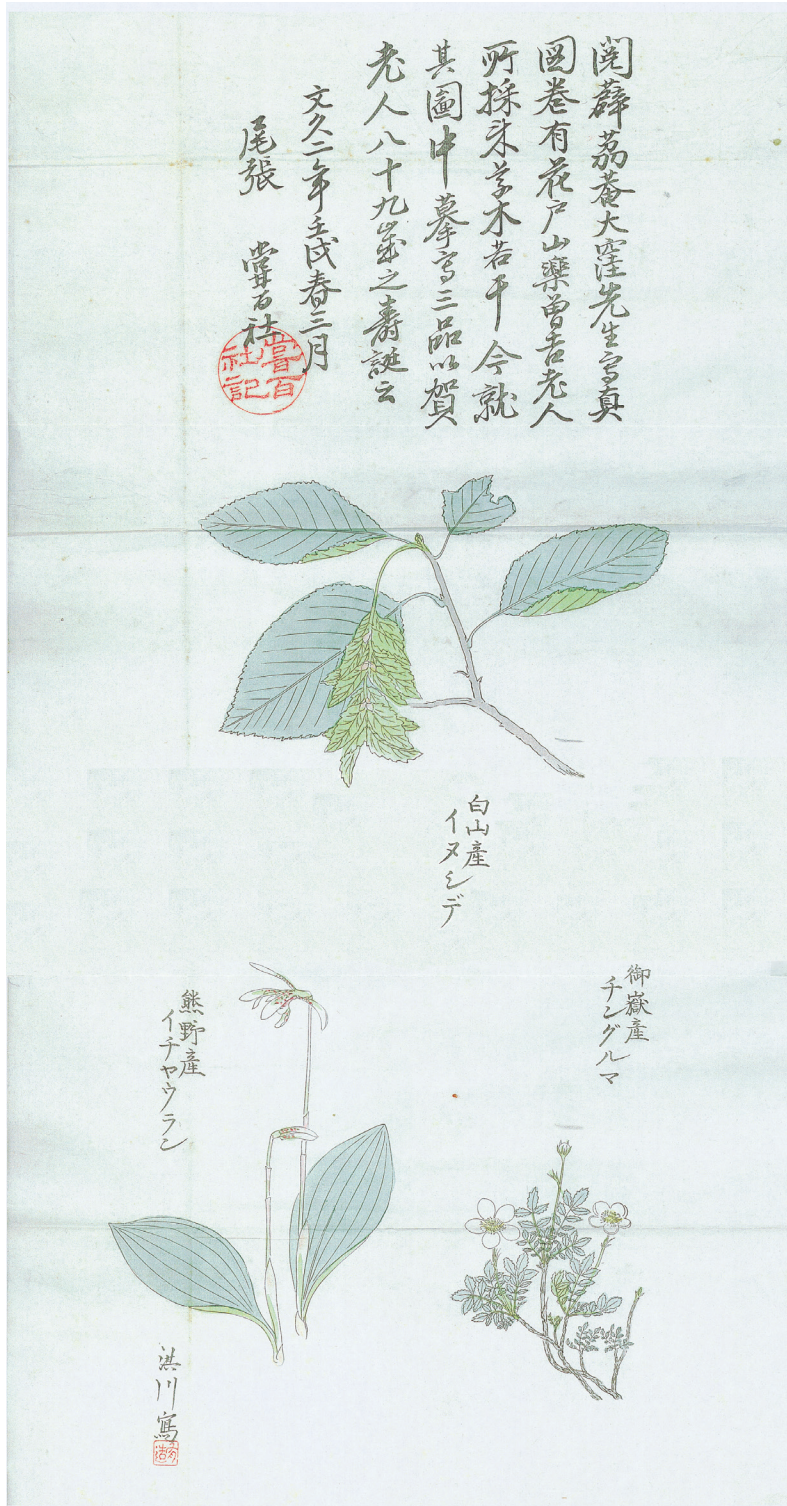 閲薜茘菴大窪先生寫真
圖卷有花戸山樂曽吉老人
所採来草木若干今就
其圖中摹寫三品以賀
老人八十九嵗之壽誕云
文久二年壬戌春三月
尾張 嘗百社
嘗百
社記
白山産
イヌシデ
御嶽産
チングルマ
熊野産
イチヤウラン
洪川寫